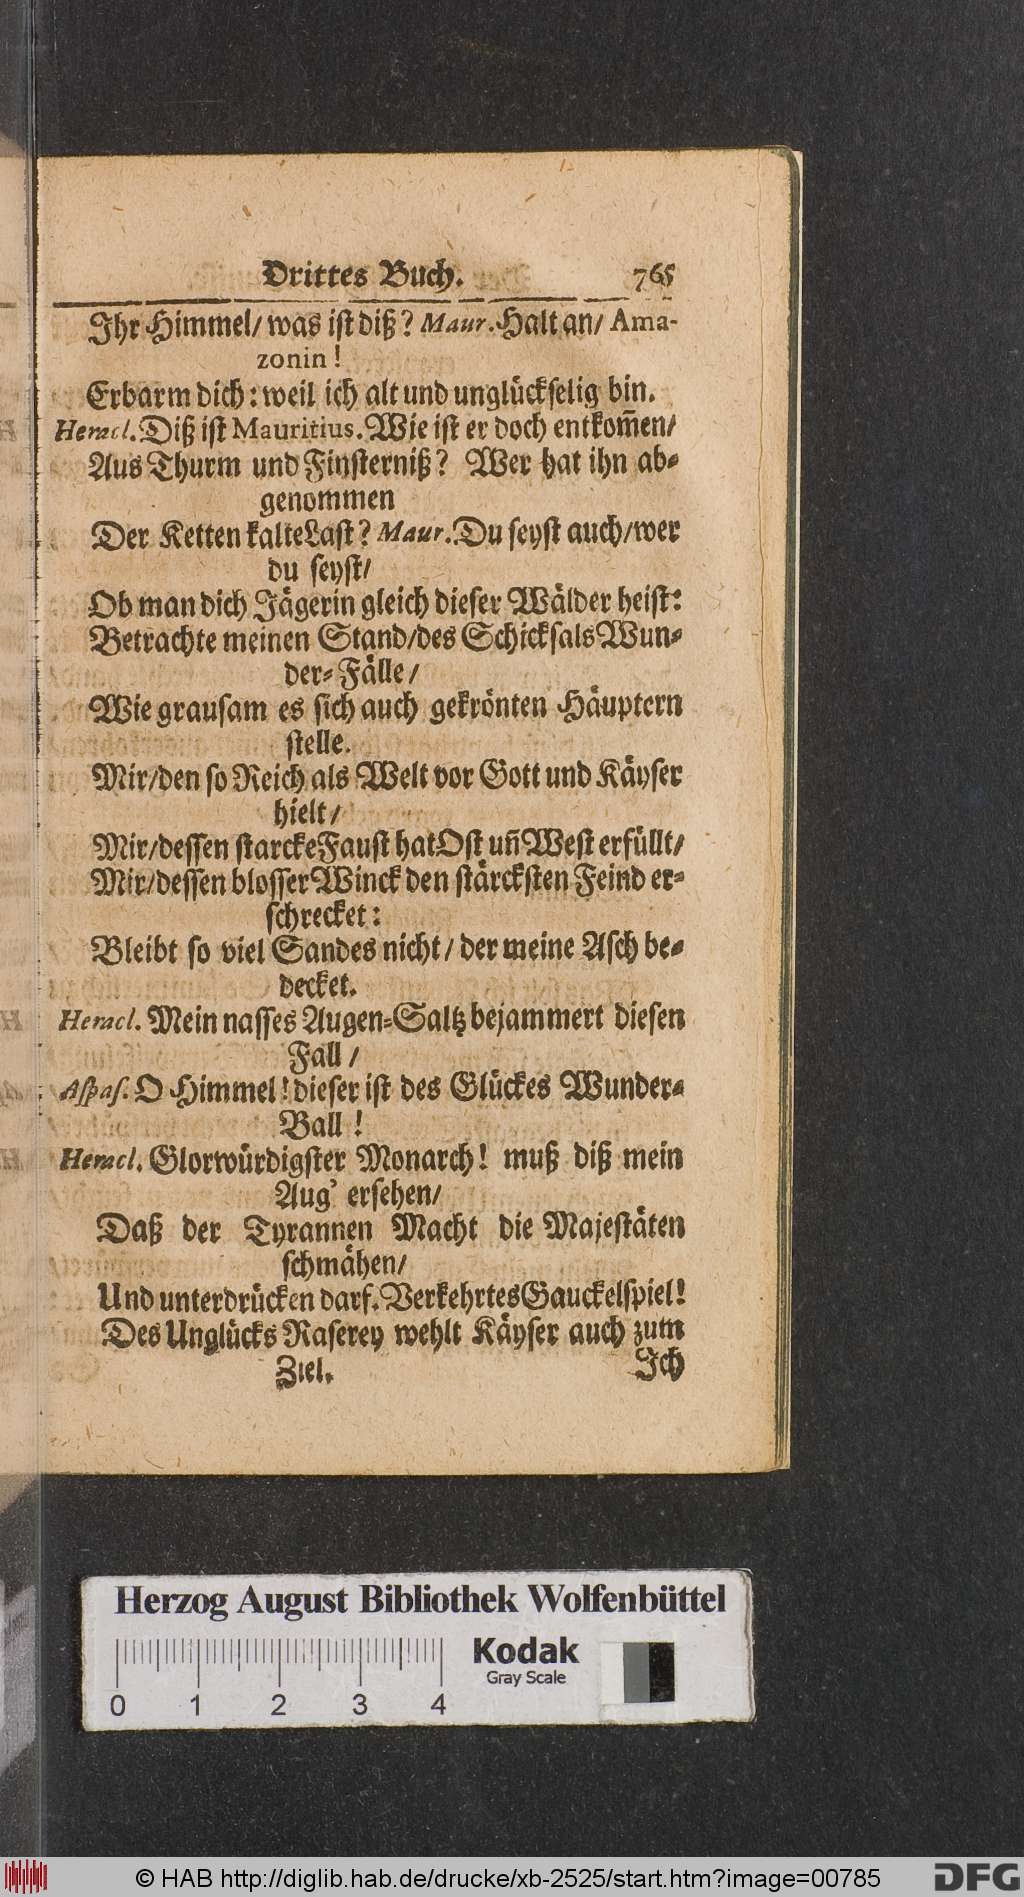 Drittes Buch. 765
Ihr Himmel/ was ist diß? Maur. Halt an/ Ama-
zonin!
Erbarm dich: weil ich alt und unglückselig bin.
Heracl. Diß ist Mauritius. Wie ist er doch entkom̃en/
Aus Thurm und Finsterniß? Wer hat ihn ab-
genommen
Der Ketten kalte Last? Maur. Du seyst auch/ wer
du seyst/
Ob man dich Jägerin gleich dieser Wälder heist:
Betrachte meinen Stand/ des Schicksals Wun-
der-Fälle/
Wie grausam es sich auch gekrönten Häuptern
stelle.
Mir/ den so Reich als Welt vor Gott und Käyser
hielt/
Mir/ dessen starcke Faust hat Ost uñ West erfüllt/
Mir/ dessen blosser Winck den stärcksten Feind er-
schrecket:
Bleibt so viel Sandes nicht/ der meine Asch be-
decket.
Heracl. Mein nasses Augen-Saltz bejammert diesen
Fall/
Aspas. O Himmel! dieser ist des Glückes Wunder-
Ball!
Heracl. Glorwürdigster Monarch! muß diß mein
Aug' ersehen/
Daß der Tyrannen Macht die Majestäten
schmähen/
Und unterdrücken darf. Verkehrtes Gauckelspiel!
Des Unglücks Raserey wehlt Käyser auch zum
Ziel. Ich
Herzog August Bibliothek Wolfenbüttel
Kodak
Gray Scale
0 1 2 3 4
© HAB http://diglib.hab.de/drucke/xb-2525/start.htm?image=00785
DFG